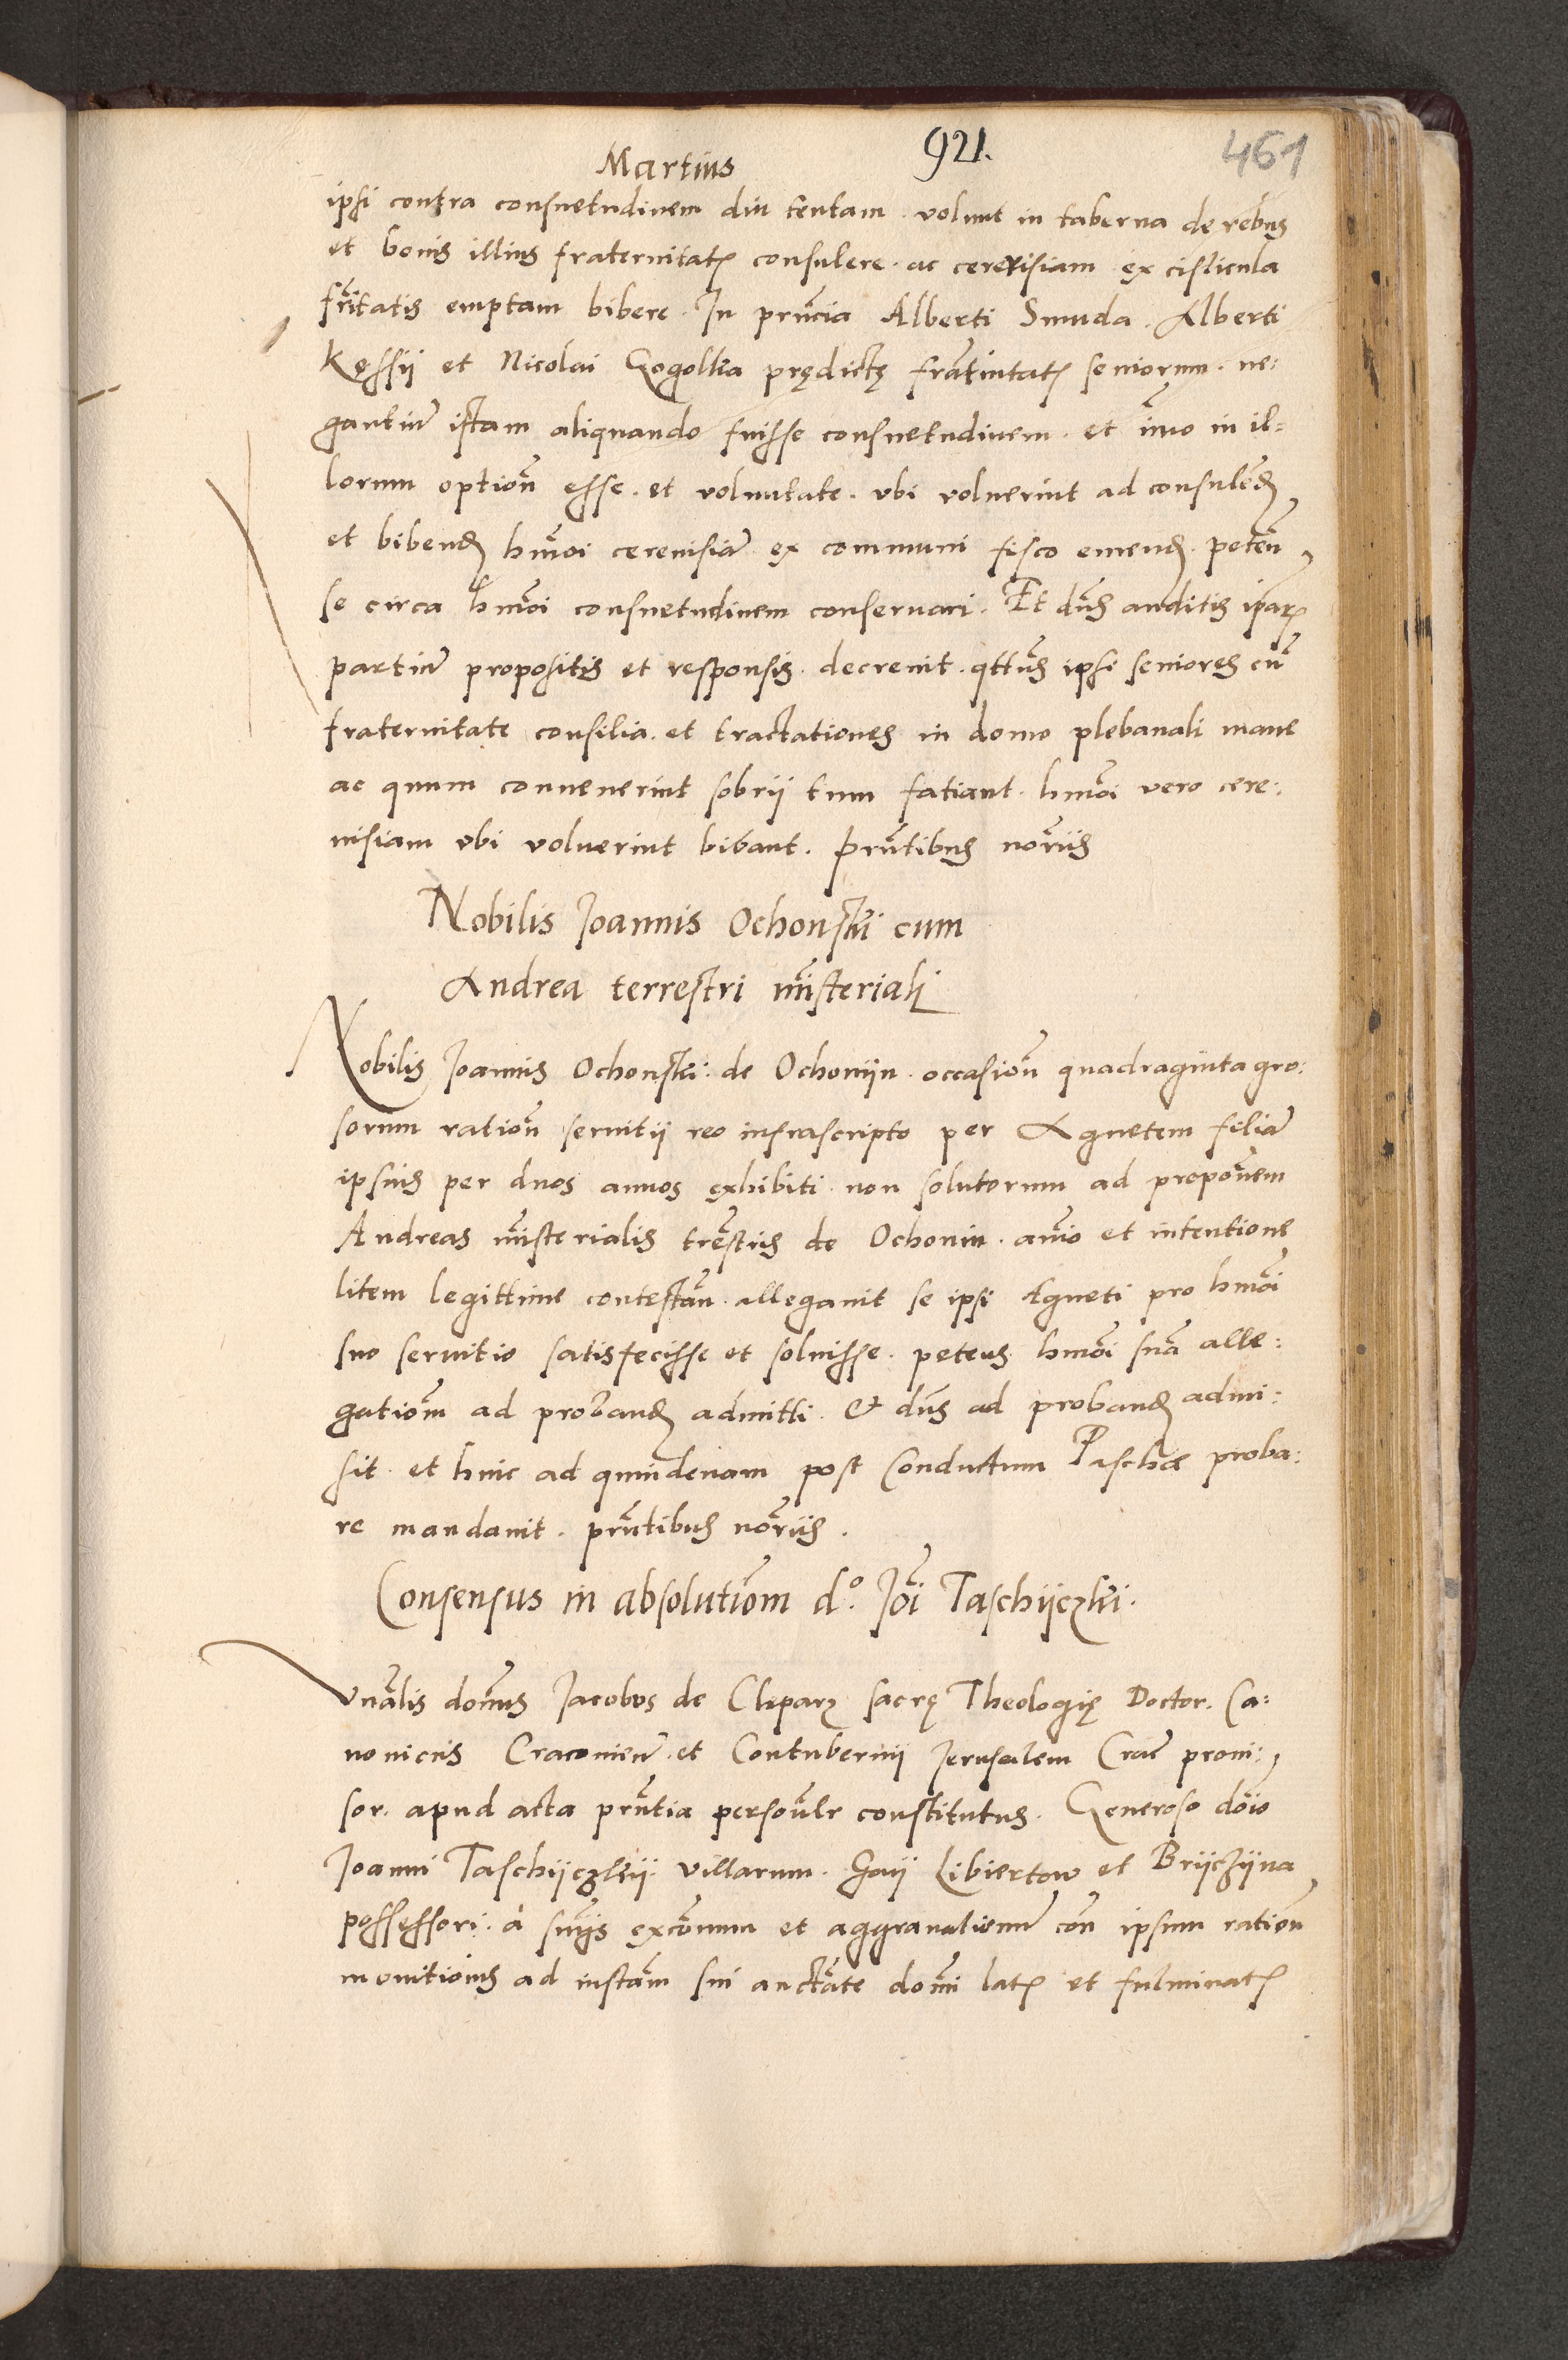 921.
461
Martius
ipsi contra consuetudinem diu tentam. volunt in taberna de rebus
et bonis illius fraternitatis consulere. ac cerevisiam ex cisticula
frnitatis emptam bibere. In prncia Alberti Smuda. Alberti
Kessij et Nicolai Gogolka prędictę fratnitatis seniorum. ne:
gantium istam aliquando fuisse consuetudinem. et imo in il=
lorum option esse. et voluntate. vbi voluerint ad consulend
et bibend hmoi cereuisia ex communi fisco emend. peten
se circa hmoi consuetudinem conseruari. Et dns auditis ipar
partiu propositis et responsis. decreuit. qttus ipsi seniores cu
fraternitate consilia. et tractationes in domo plebanali mane
ac quum conuenerint sobrii tum fatiant. hmoi vero cere:
uisiam vbi voluerint bibant. prntibus noriis
Nobilis Joannis Ochonski cum
Andrea terrestri misteriali
Nobilis Joannis Ochonski. de Ochonijn. occasion quadraginta gro:
sorum ration seruitij reo infrascripto per Agnetem filia
ipsius per duos annos exhibiti. non solutorum ad proponem
Andreas misterialis trestris de Ochonin. aio et intentione
litem legittime contestan. allegauit se ipsi Agneti pro hmoi
suo seruitio satisfecisse et soluisse. petens hmoi sua alle:
gationem ad proband admitti. Et dns ad proband admi:
sit. et huic ad quindenam post Conductum Paschæ proba:
re mandauit. prntibus noriis.
Consensus in absolutiom d.º Joi Taschijczki.
Vnalis domus Jacobus de Cleparz sacrę Theologię Doctor. Ca:
nonicus Cracouien. et Contubernij Jerusalem Crac proui:
sor. apud acta prntia personlr constitutus. Generoso doio
Joanni Taschijczkij villarum. Gaij Libiertow et Brijczijna
possessori. à snijs exconum et aggrauationu con ipsum ration
monitionis ad instam sui auctate domi latis et fulminatis